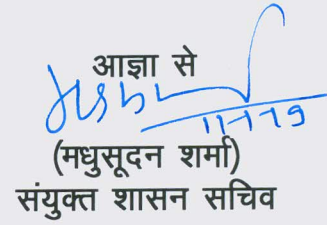 आज्ञा से
11-1-19
(मधुसूदन शर्मा)
संयुक्त शासन सचिव